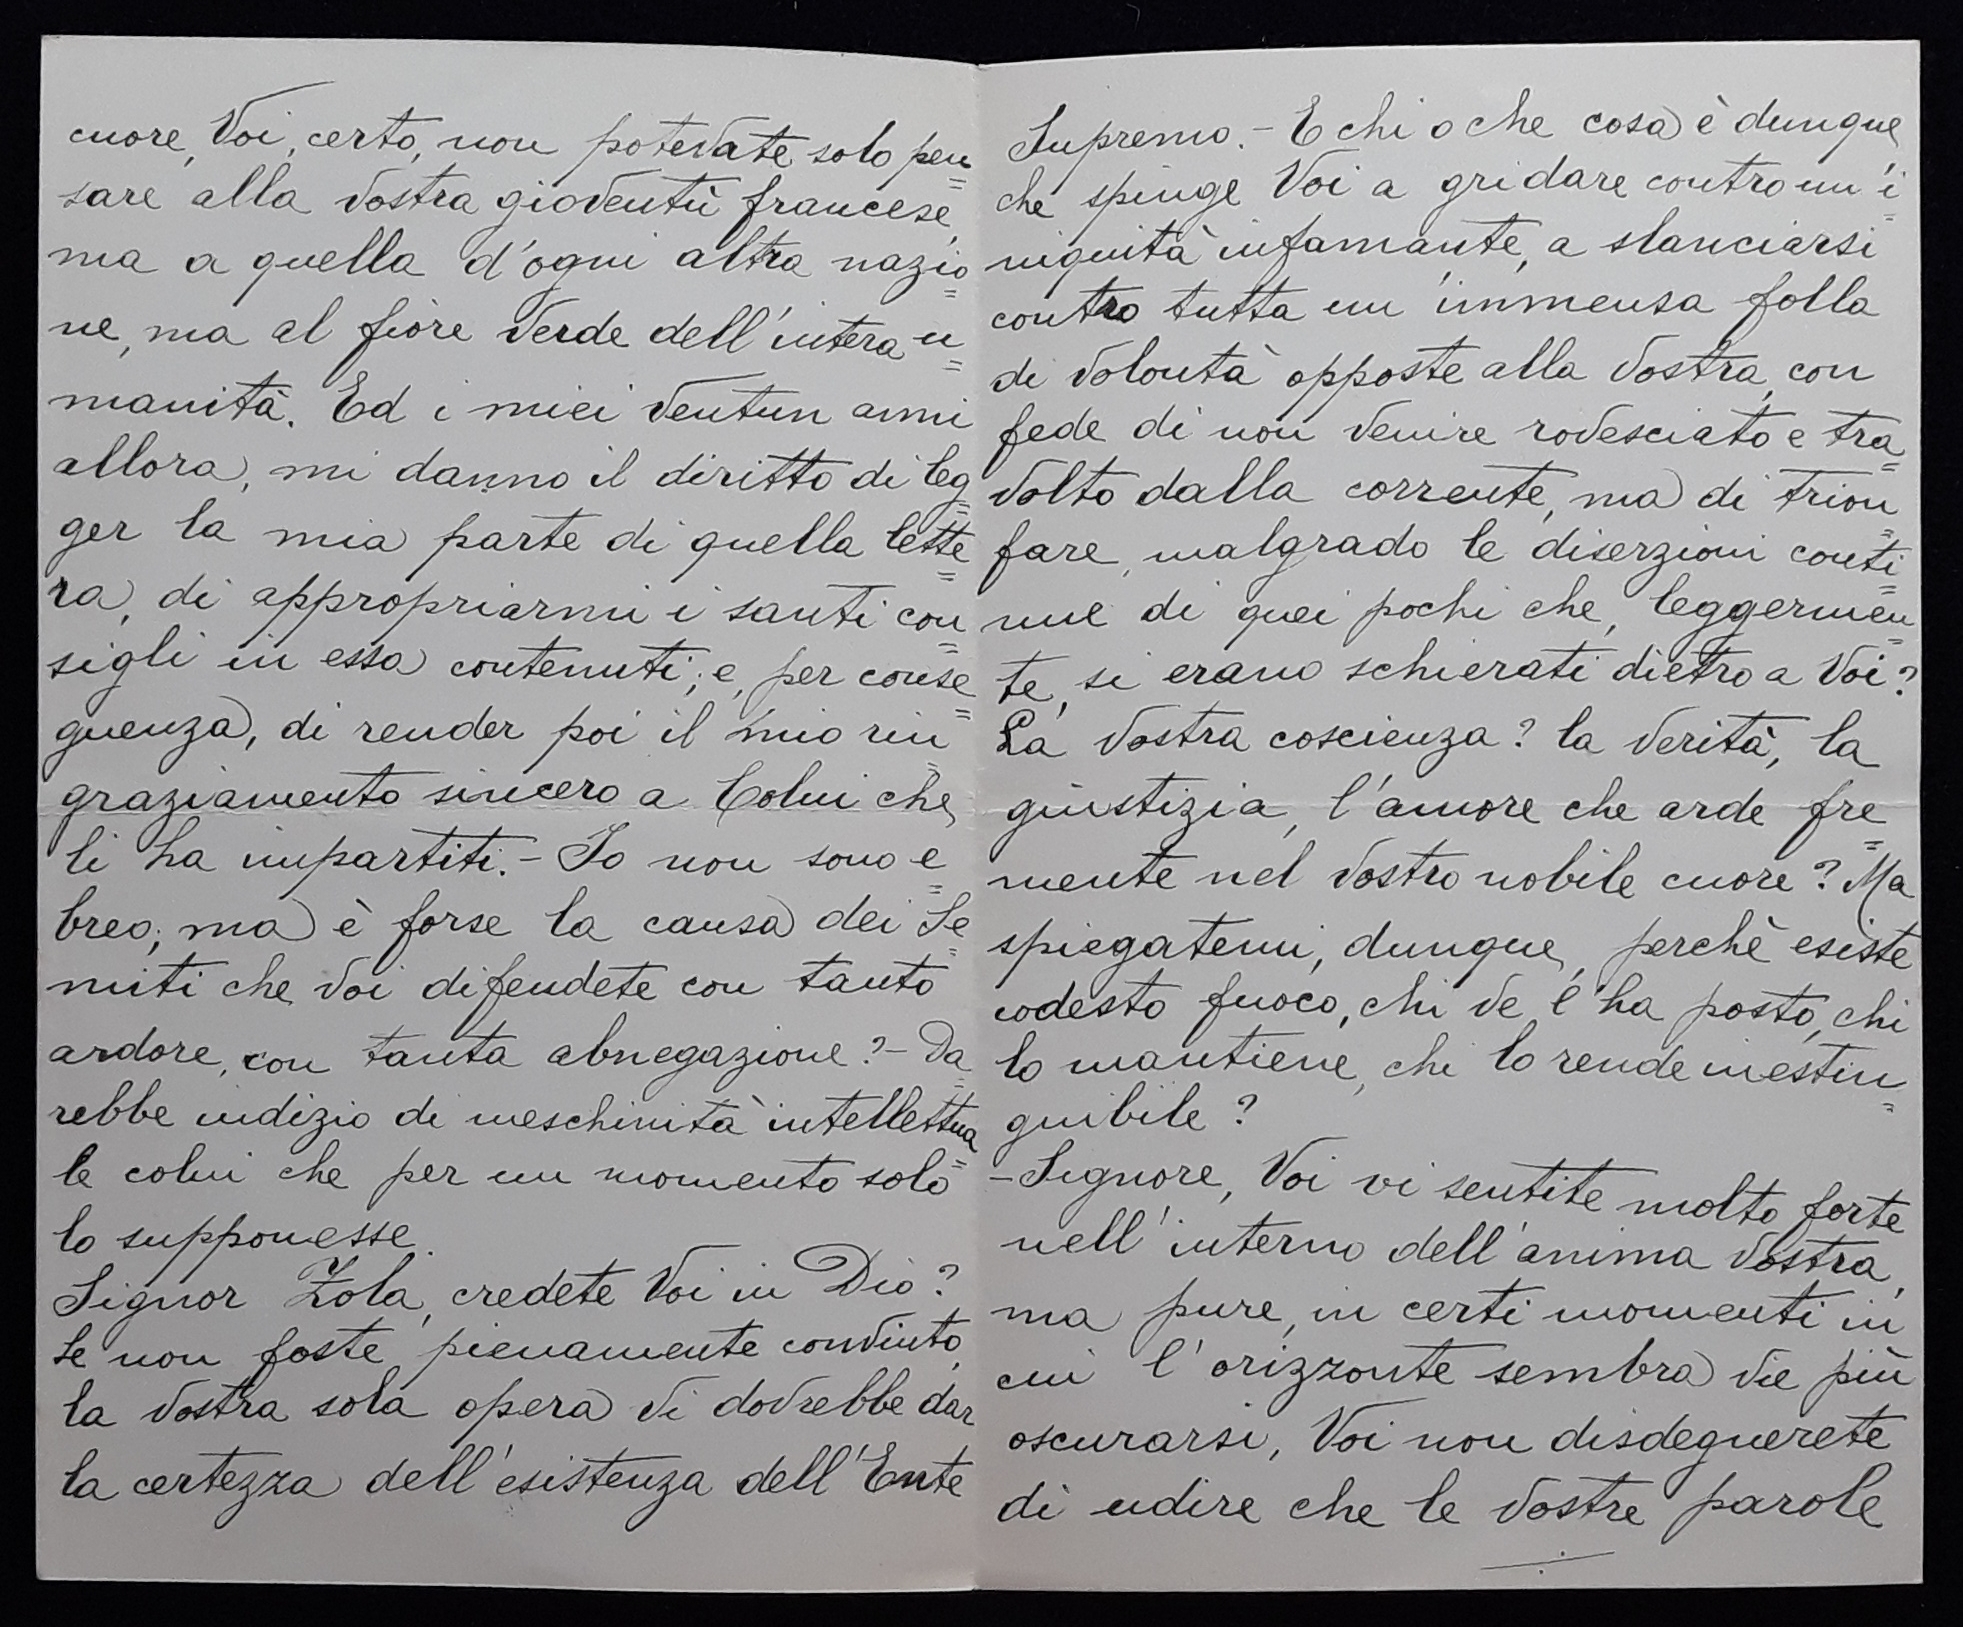 cuore, Voi, certo, non potevate solo pen=
sare alla vostra gioventù francese,
ma a quella d'ogni altra nazio=
ne, ma al fiore verde dell'intera u=
manità. Ed i miei ventun anni
allora, mi danno il diritto di leg=
ger la mia parte di quella lette=
ra, di appropriarmi i santi con=
sigli in essa contenuti; e, per conse=
guenza, di render poi il mio rin=
graziamento sincero a Colui che
li ha impartiti. - Io non sono e=
breo; ma è forse la causa dei Se=
miti che Voi difendete con tanto
ardore, con tanta abnegazione? - Da=
rebbe indizio di meschinità intellettua=
le colui che per un momento solo
lo supponesse.
Signor Zola, credete Voi in Dio?
Se non foste pienamente convinto,
la vostra sola opera vi dovrebbe dar
la certezza dell'esistenza dell'Ente
Supremo. - E chi o che cosa è dunque
che spinge Voi a gridare contro un'i=
niquità infamante, a slanciarsi
contro tutta un'immensa folla
di volontà opposte alla vostra, con
fede di non venire rovesciato e tra=
volto dalla corrente, ma di trion=
fare, malgrado le diserzioni conti=
nue di quei pochi che, leggermen=
te, si erano schierati dietro a Voi?
La vostra coscienza? la verità, la
giustizia, l'amore che arde fre=
mente nel vostro nobile cuore? Ma
spiegatemi, dunque, perchè esiste
codesto fuoco, chi ve l'ha posto, chi
lo mantiene, chi lo rende inestin=
guibile?
- Signore, Voi vi sentite molto forte
nell'interno dell'anima vostra,
ma pure, in certi momenti in
cui l'orizzonte sembra vie più
oscurarsi, Voi non disdegnerete
di udire che le vostre parole